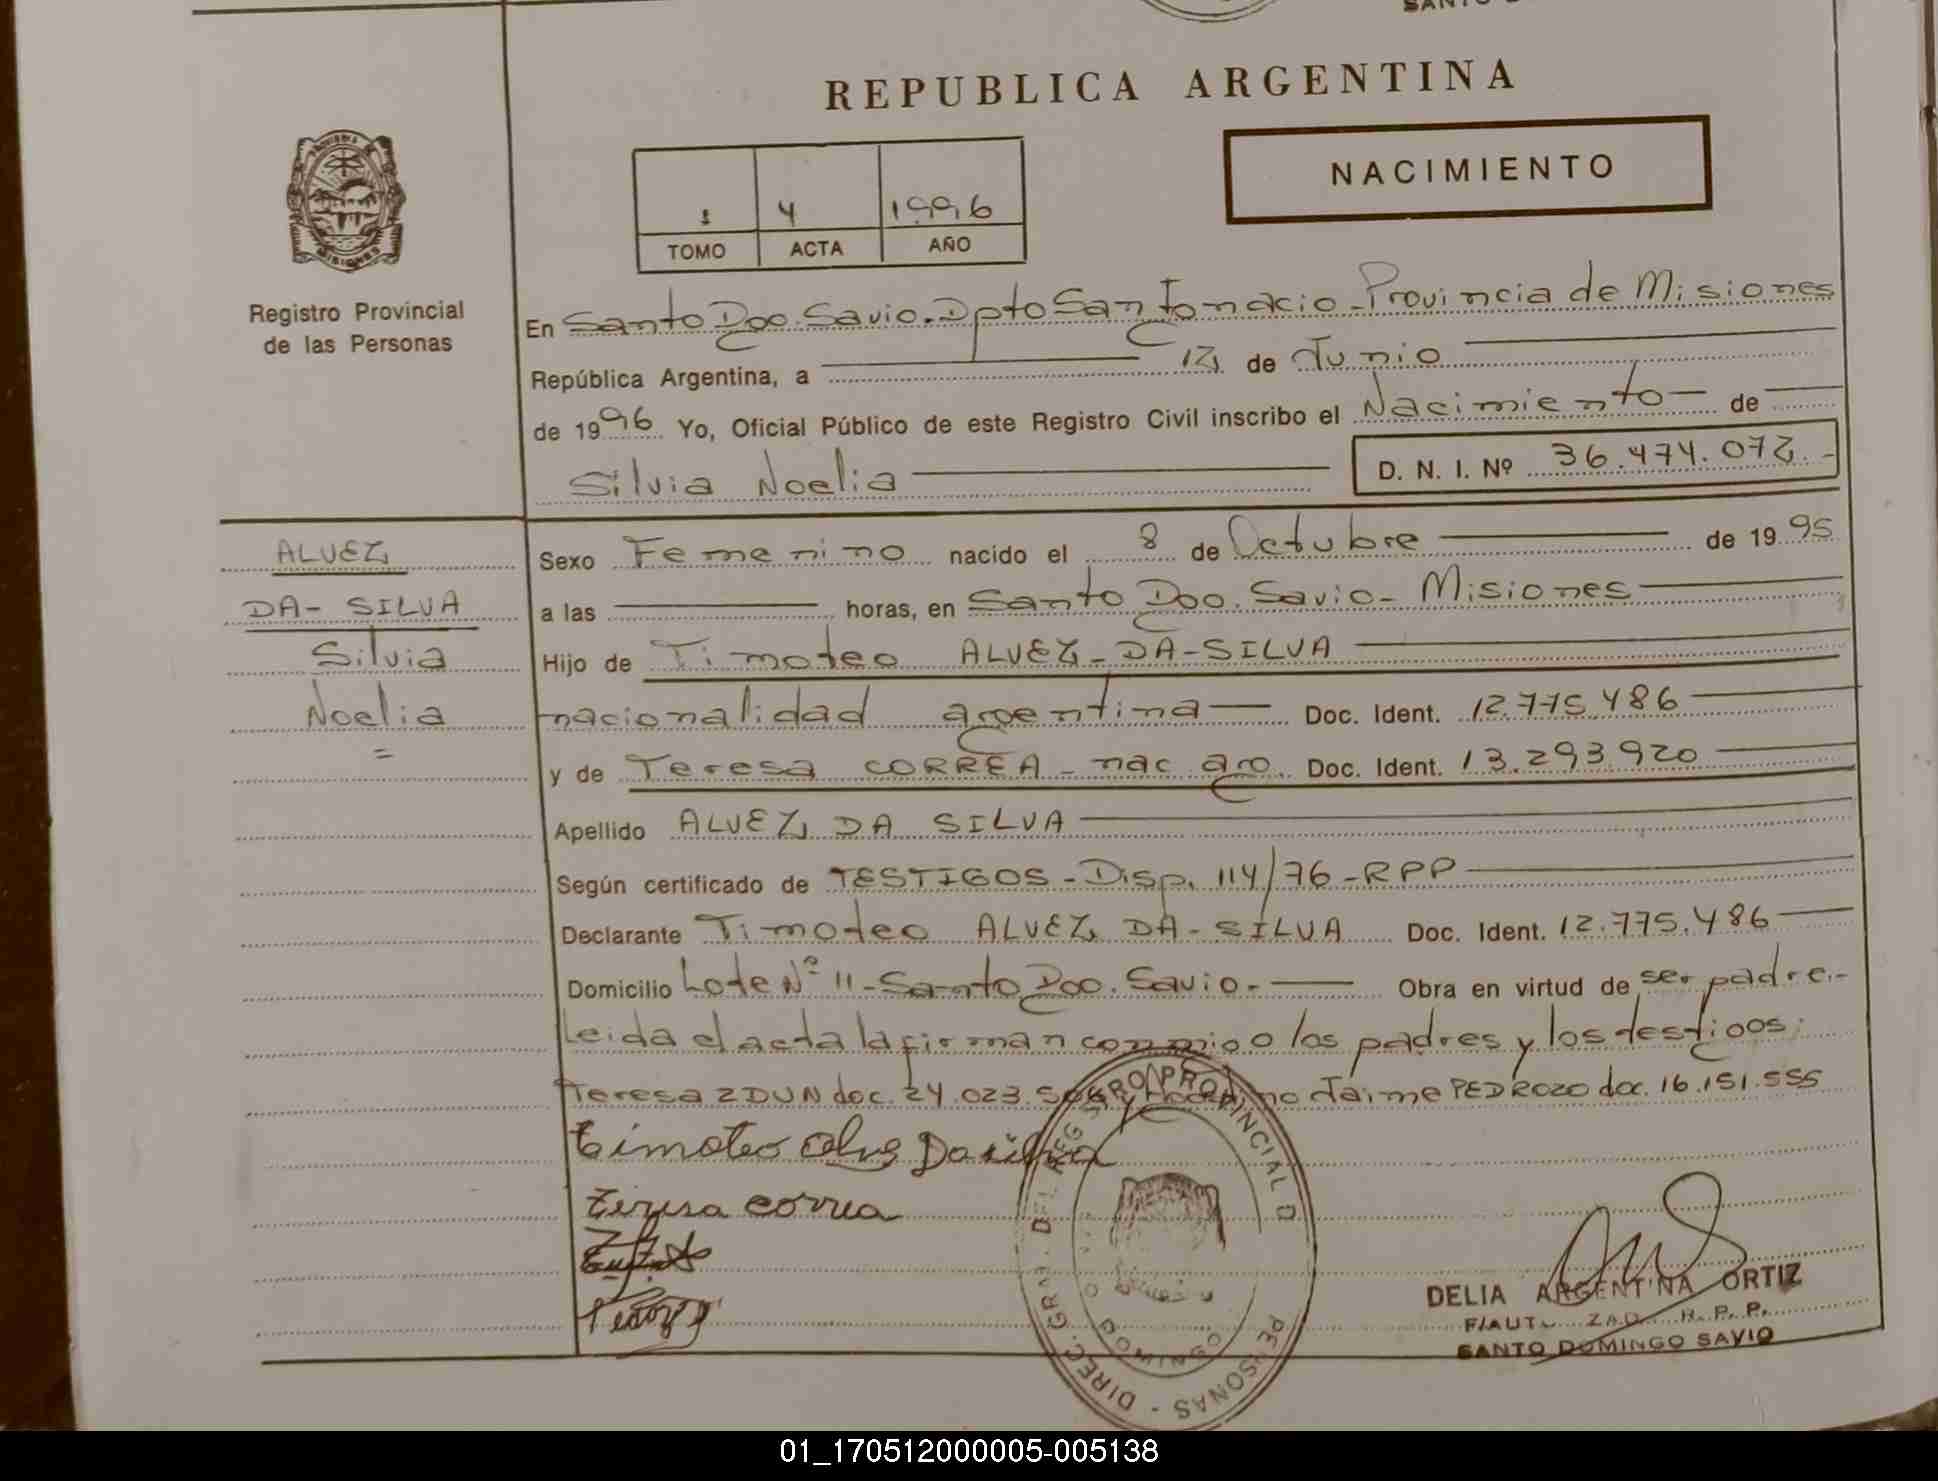 REPUBLICA ARGENTINA
NACIMIENTO
1 4 1996
TOMO ACTA AÑO
Registro Provincial
de las Personas
En Santo Dgo. Savio. Dpto San Ignacio. Provincia de Misiones
República Argentina, a 12 de Junio
de 1996 Yo, Oficial Público de este Registro Civil inscribo el Nacimiento de
Silvia Noelia D. N. I. Nº 36.474.072.-
ALVEZ
DA- SILVA
Silvia
Noelia
=
Sexo Femenino nacido el 8 de Octubre de 1995
a las horas, en Santo Dgo. Savio- Misiones
Hijo de Timoteo ALVEZ- DA-SILVA
nacionalidad argentina Doc. Ident. 12.775.486
y de Teresa CORREA - nac arg. Doc. Ident. 13.293.920
Apellido ALVEZ DA SILVA
Según certificado de TESTIGOS - Disp. 114/76 - RPP
Declarante Timoteo ALVEZ DA-SILVA Doc. Ident. 12.775.486
Domicilio Lote Nº 11 - Santo Dgo. Savio.- Obra en virtud de ser padre.-
Leida el acta la firman conmigo los padres y los testigos:
Teresa ZDUN doc. 24.023. Jaime PEDROZO doc. 16.151.555
timoteo Da silva
teresa correa
DIREC. GRAL. DEL REGISTRO PROVINCIAL D PERSONAS -
DOMINGO
DELIA ARGENTINA ORTIZ
F/AUT ZAD. R. P. P.
SANTO DOMINGO SAVIO
01_170512000005-005138